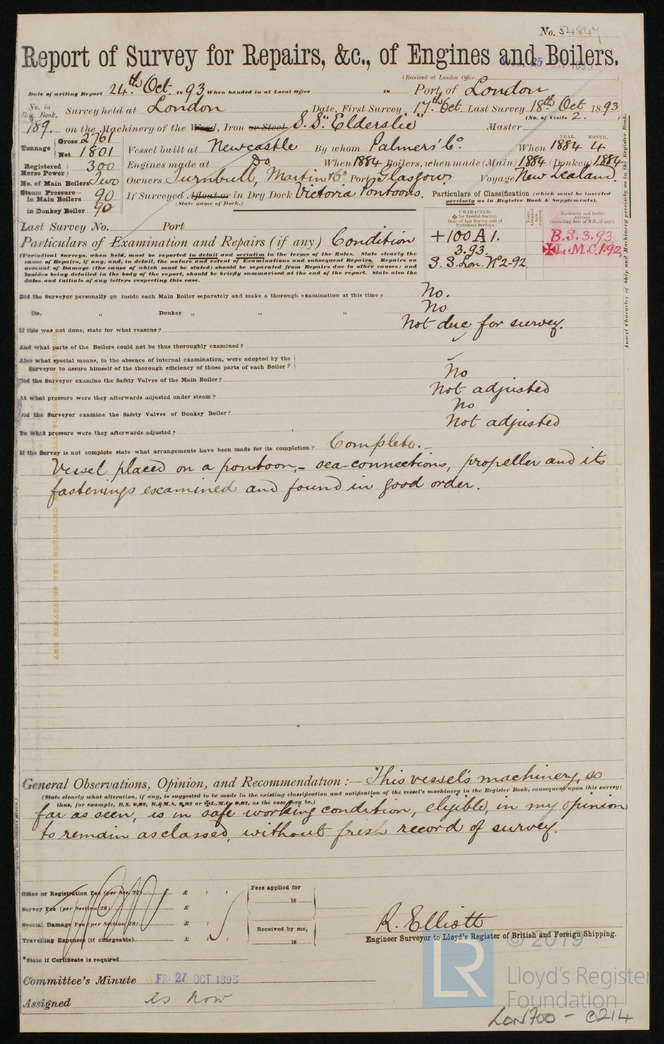 No. 54847
Report of Survey for Repairs, &c., of Engines and Boilers.
(Received at London Office 25 1893
Date of writing Report 24th Oct. 1893 When handed in at Local Office 18 Port of London
No. in Reg. Book. Survey held at London Date, First Survey 17th Oct. Last Survey 18th Oct 1893
(No. of Visits 2.)
189. on the Machinery of the Wood, Iron or Steel S.S. "Elderslie" Master
Tonnage Gross 2761 Net 1801 Vessel built at Newcastle By whom Palmers' Co. When YEAR. 1884 MONTH. 4
Registered Horse Power 300 Engines made at Do When 1884 Boilers, when made (Main) 1884 (Donkey) 1884
No. of Main Boilers Two Owners Turnbull, Martin & Co. Port Glasgow Voyage New Zealand.
Steam Pressure— in Main Boilers 90 If Surveyed Afloat or in Dry Dock Victoria Pontoons.
(State name of Dock.)
in Donkey Boiler 90
Particulars of Classification (which must be inserted precisely as in Register Book & Supplements).
Last Survey No. Port
+100A1. B.S. 3.93
3.93. ✠L.M.C. 1.92
S.S. Lon. No. 2-92
Insert Character of Ship and Machinery precisely as in the Register Book
Particulars of Examination and Repairs (if any) Condition
(Periodical Surveys, when held, must be reported in detail and seriatim in the terms of the Rules. State clearly the
cause of Repairs, if any, and, in detail, the nature and extent of Examinations and subsequent Repairs. Repairs on
account of Damage (the cause of which must be stated) should be separated from Repairs due to other causes; and
besides being detailed in the body of the report, should be briefly summarised at the end of the report. State also the
dates and initials of any letters respecting this case.
Did the Surveyor personally go inside each Main Boiler separately and make a thorough examination at this time? No.
Do. „ Donkey „ „ „ No
If this was not done, state for what reasons? Not due for survey.
And what parts of the Boilers could not be thus thoroughly examined?
Also what special means, in the absence of internal examination, were adopted by the
Surveyor to assure himself of the thorough efficiency of those parts of each Boiler?
Did the Surveyor examine the Safety Valves of the Main Boiler? No
At what pressure were they afterwards adjusted under steam? Not adjusted
Did the Surveyor examine the Safety Valves of Donkey Boiler? No
To what pressure were they afterwards adjusted? Not adjusted
If the Survey is not complete state what arrangements have been made for its completion? Complete.
Vessel placed on a pontoon,— sea-connections, propeller and its
fastenings examined and found in good order.
General Observations, Opinion, and Recommendation :— This vessel's machinery, so
(State clearly what alteration, if any, is suggested to be made in the existing classification and notification of the vessel's machinery in the Register Book, consequent upon this survey:
far as seen, is in safe working condition, eligible, in my opinion
to remain as classed, without fresh record of survey.
Office or Registration Fee (per Sec. 27) £ : : Fees applied for
Survey Fee (per Section 28) £ : : 18
Special Damage Fee (per Section 28) £ : : Received by me,
Travelling Expenses (if chargeable) £ : : 18
*State if Certificate is required
R. Elliott
Engineer Surveyor to Lloyd's Register of British and Foreign Shipping.
Committee's Minute FRI 27 OCT 1893
Assigned As now
© 2019
LR
Lloyd's Register
Foundation
LON700 - 0214